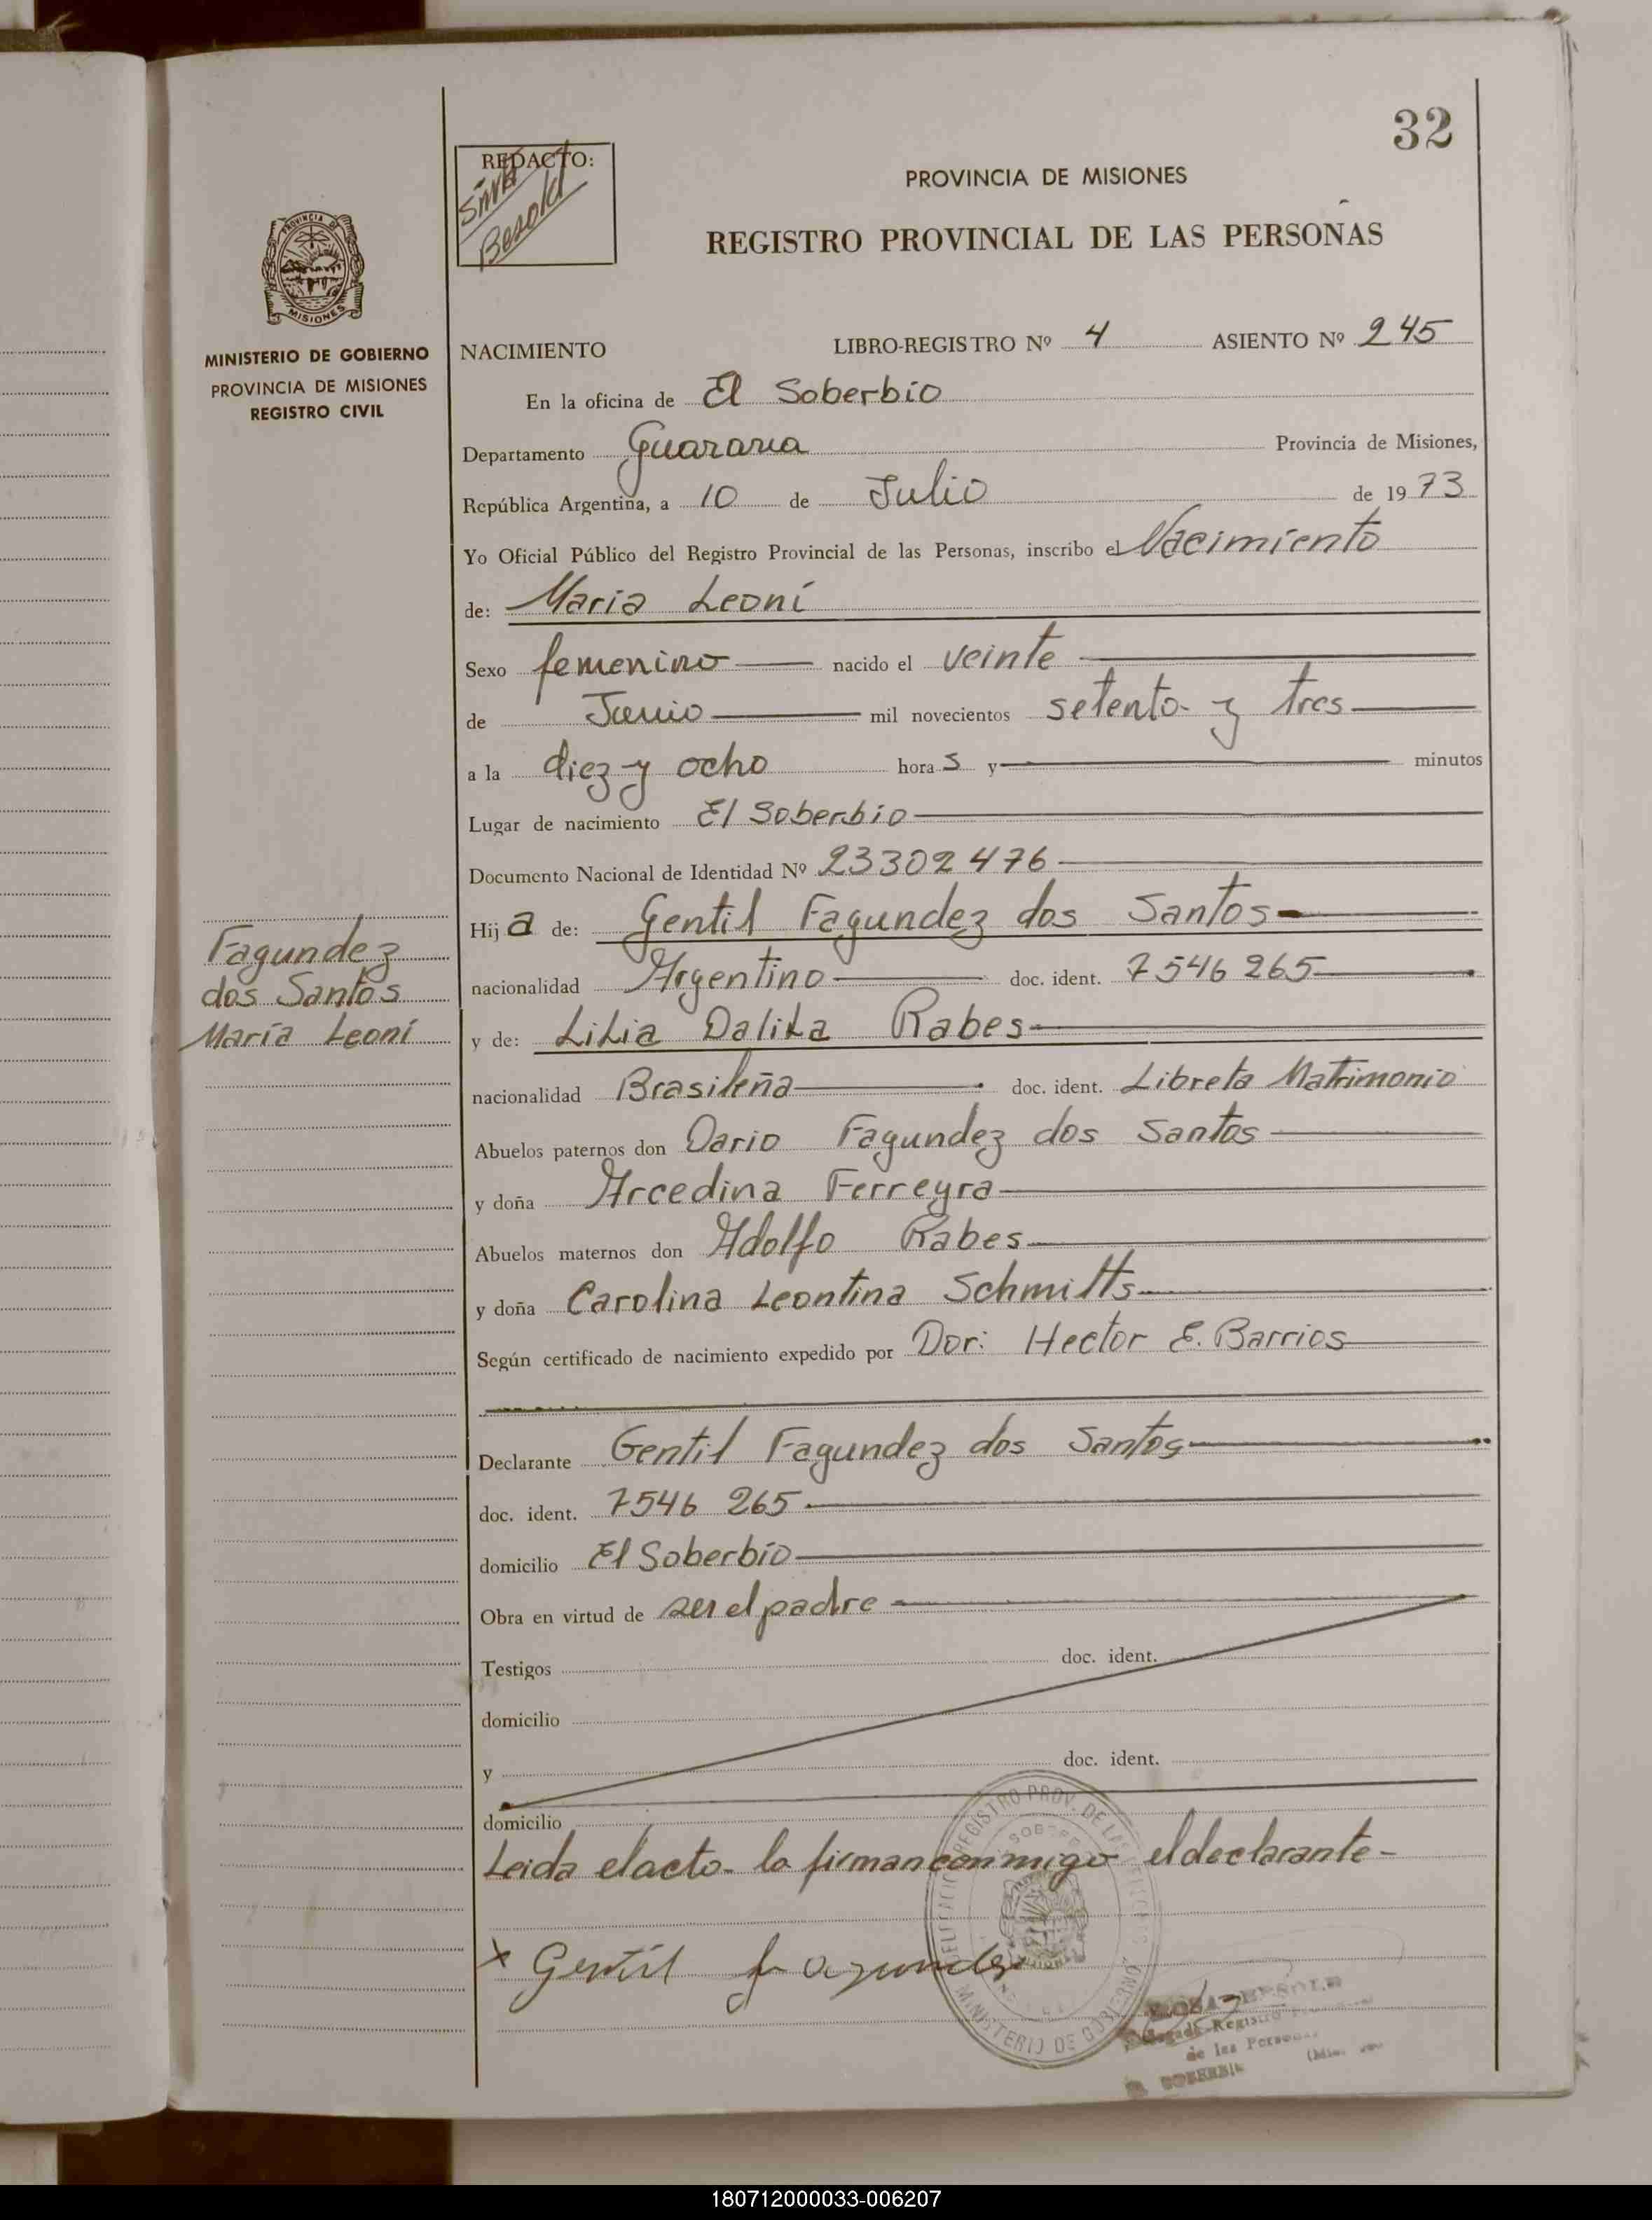 32
REDACTO:
Besold
PROVINCIA DE MISIONES
REGISTRO PROVINCIAL DE LAS PERSONAS
PROVINCIA DE
MISIONES
MINISTERIO DE GOBIERNO
PROVINCIA DE MISIONES
REGISTRO CIVIL
NACIMIENTO LIBRO-REGISTRO Nº 4 ASIENTO Nº 245
En la oficina de El Soberbio
Departamento Guarania Provincia de Misiones,
República Argentina, a 10 de Julio de 1973
Yo Oficial Público del Registro Provincial de las Personas, inscribo el Nacimiento
de: María Leoní
Sexo femenino nacido el veinte
de Junio mil novecientos setenta y tres
a la diez y ocho horas y minutos
Lugar de nacimiento El Soberbio
Documento Nacional de Identidad Nº 23302476
Hija de: Gentil Fagundez dos Santos
nacionalidad Argentino doc. ident. 7546265
y de: Lilia Dalila Rabes
nacionalidad Brasileña doc. ident. Libreta Matrimonio
Abuelos paternos don Dario Fagundez dos Santos
y doña Arcedina Ferreyra
Abuelos maternos don Adolfo Rabes
y doña Carolina Leontina Schmitts
Según certificado de nacimiento expedido por Dor: Hector E. Barrios
Declarante Gentil Fagundez dos Santos
doc. ident. 7546 265
domicilio El Soberbio
Obra en virtud de ser el padre
Testigos doc. ident.
domicilio
y doc. ident.
domicilio
Leida el acta la firman conmigo el declarante-
x Gentil fagundez
Fagundez
dos Santos
María Leoní
REGISTRO PROV. DE LAS
MINISTERIO DE GOBIERNO
Registro
de las
180712000033-006207